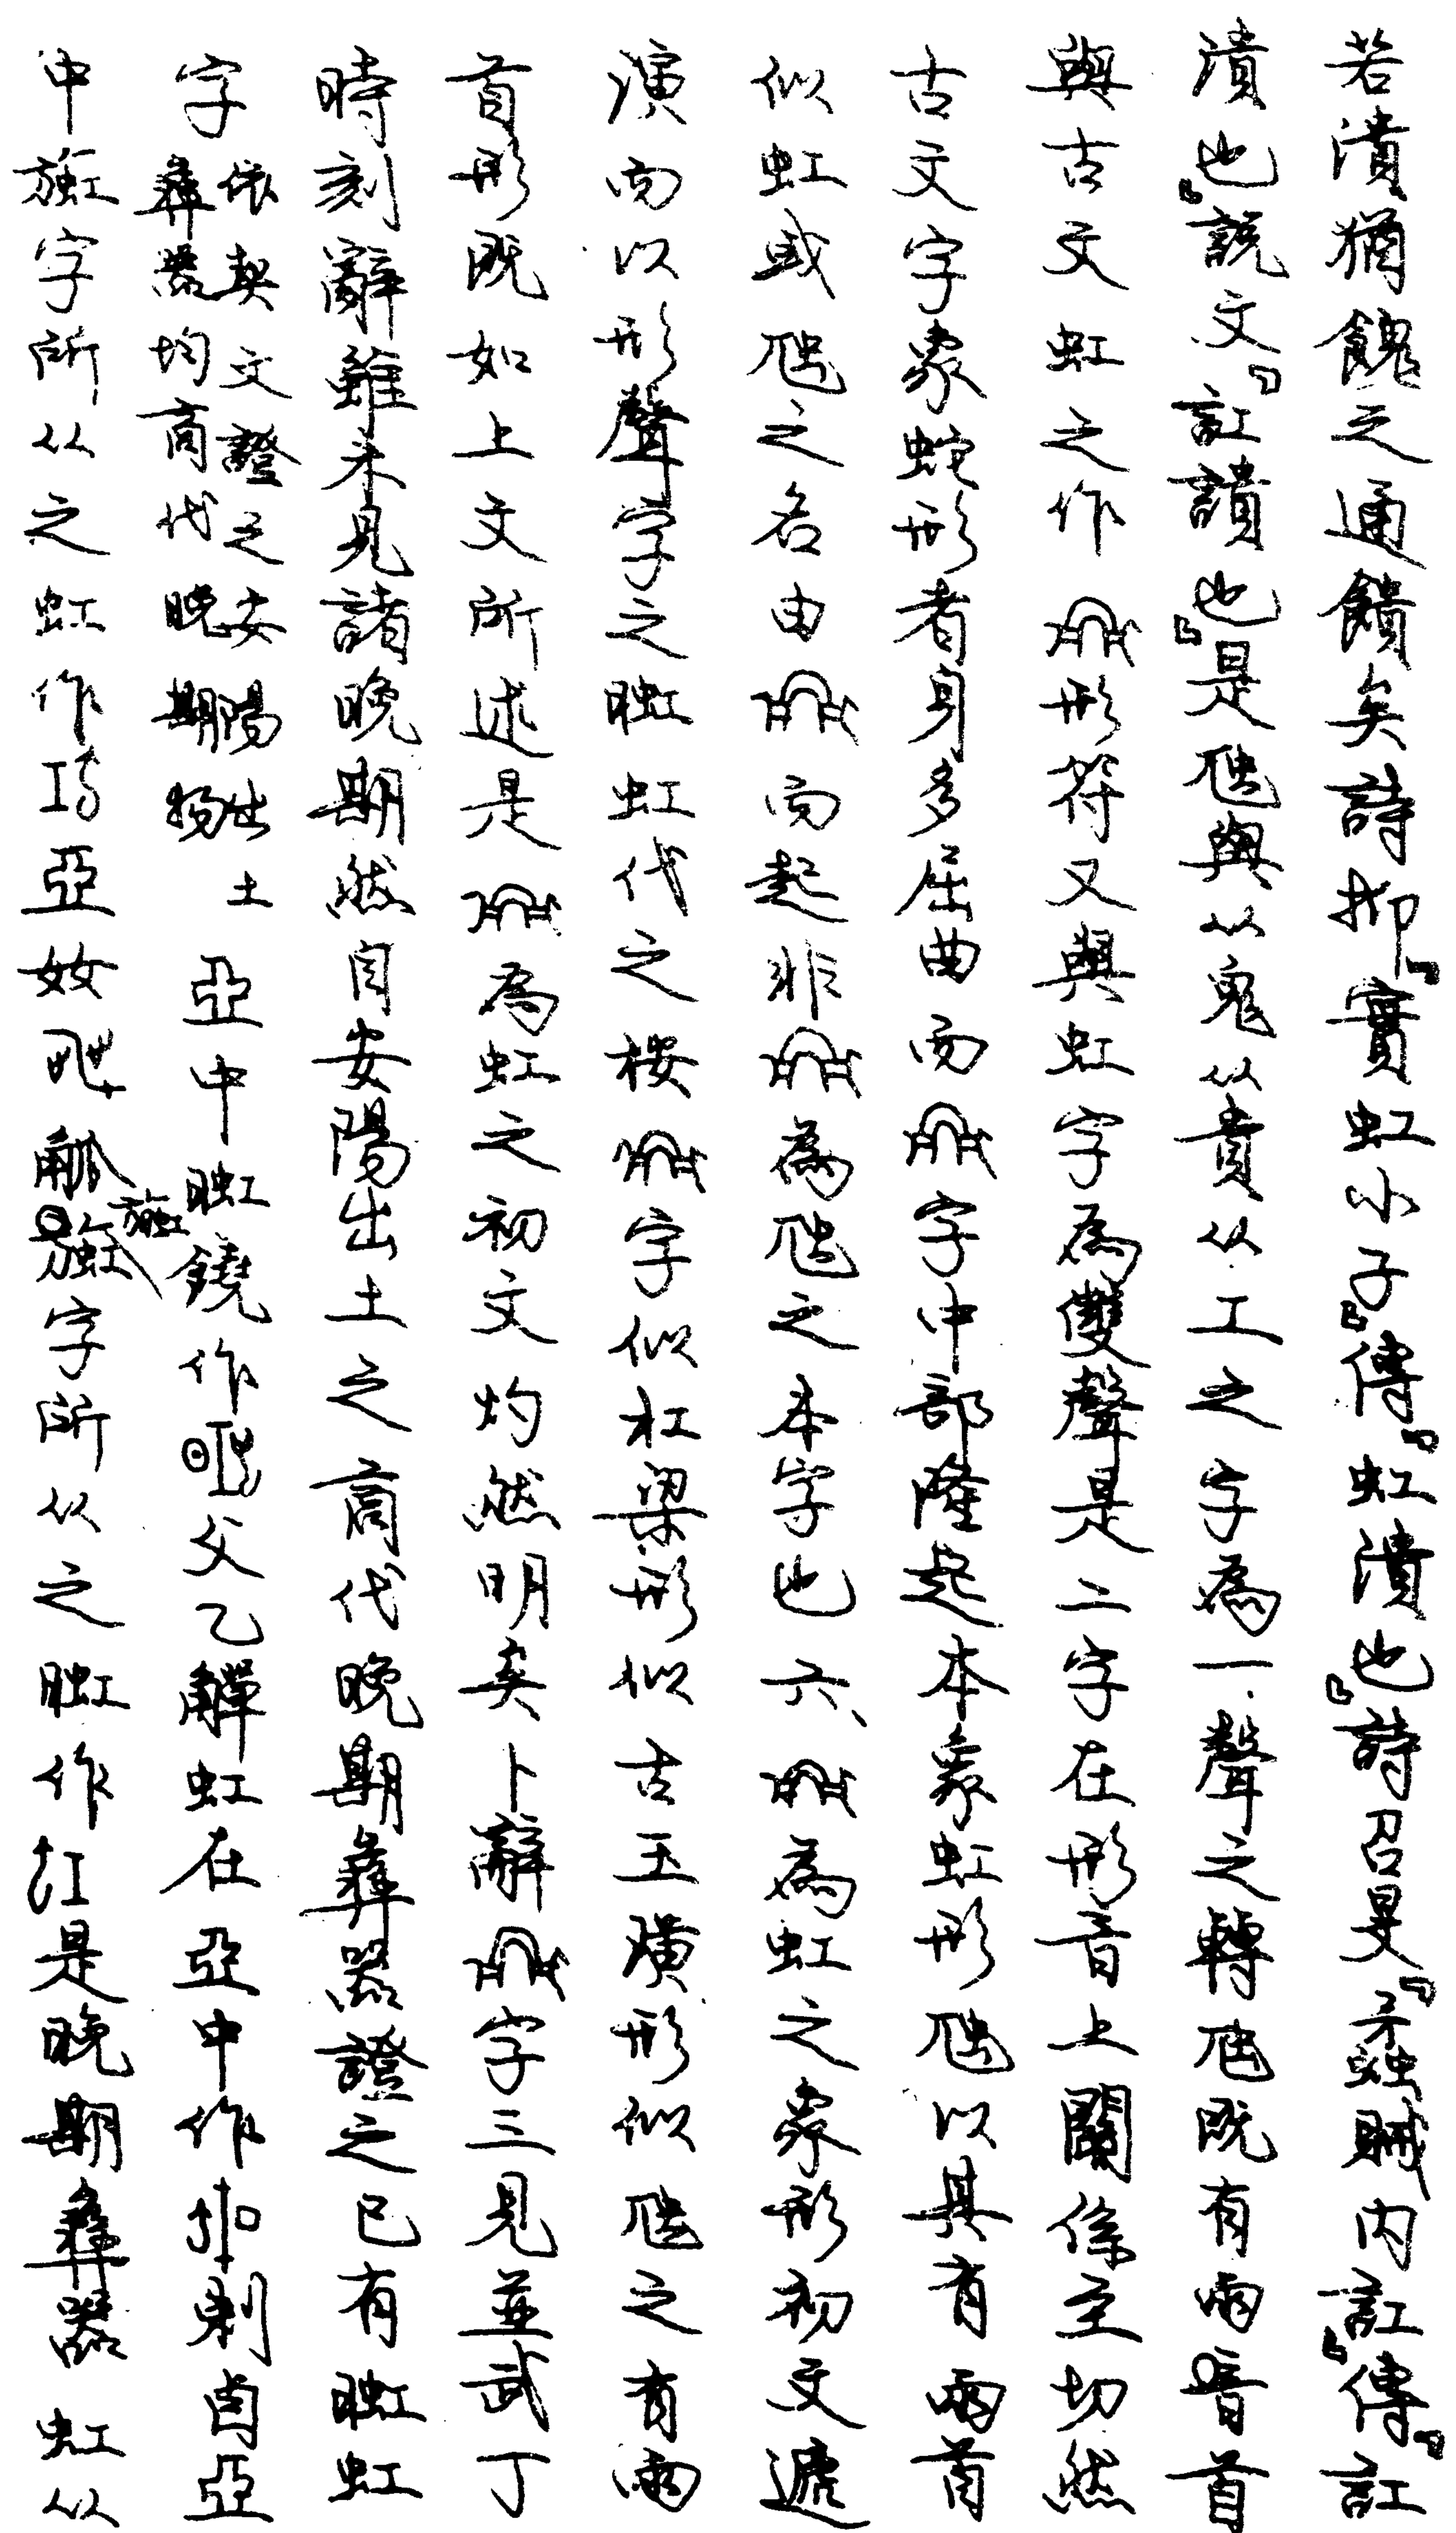 若潰猶餽之通饋矣詩抑『實虹小子』傳『虹潰也』詩召旻『蟊賊內訌』傳『訌
潰也』說文『訌讃也』是虺與从鬼从貴从工之字為一聲之轉虺既有兩首
與古文虹之作形符又與虹字為雙聲是二字在形音上關係至切然
古文字象蛇形者身多屈曲而字中部隆起本象虹形虺以其有兩首
似虹或虺之名由而起非為虺之本字也六、為虹之象形初文遞
演而以形聲字之虹代之按字似杠梁形似古玉璜形似虺之有兩
首形既如上文所述是為虹之初文灼然明矣卜辭字三見並武丁
時刻辭雖未見諸晚期然自安陽出土之商代晚期彝器證之已有虹
字依契文證之安陽出土彝器均商代晚期物亞中鐃作父乙觶虹在亞中作剌卣亞
中字所从之虹作亞奻觚字所从之作是晚期彝器虹从